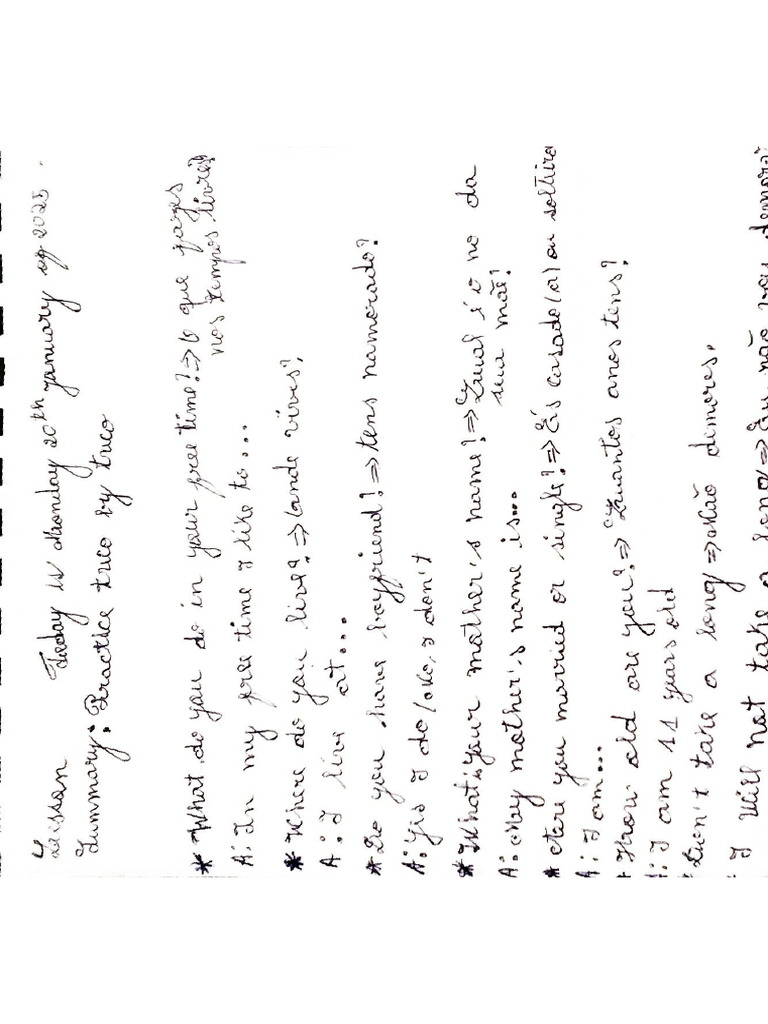 Lesson Today is Monday 20th january of 2025.
Summary: Practice two by two
* What do you do in your free time? => O que fazes
nos tempos livres?
A: In my free time I like to...
* Where do you live? => Onde vives?
A: I live at...
* Do you have boyfriend? => tens namorado?
A: Yes I do / No, I don't
* What is your mother's name? => Qual é o no da
sua mãe?
A: My mother's name is...
* Are you married or single? => És casado(a) ou solteiro
A: I am...
* How old are you? => Quantos anos tens?
A: I am 11 years old
* Don't take a long => Não demores.
I will not take a long => Eu não vou demorar